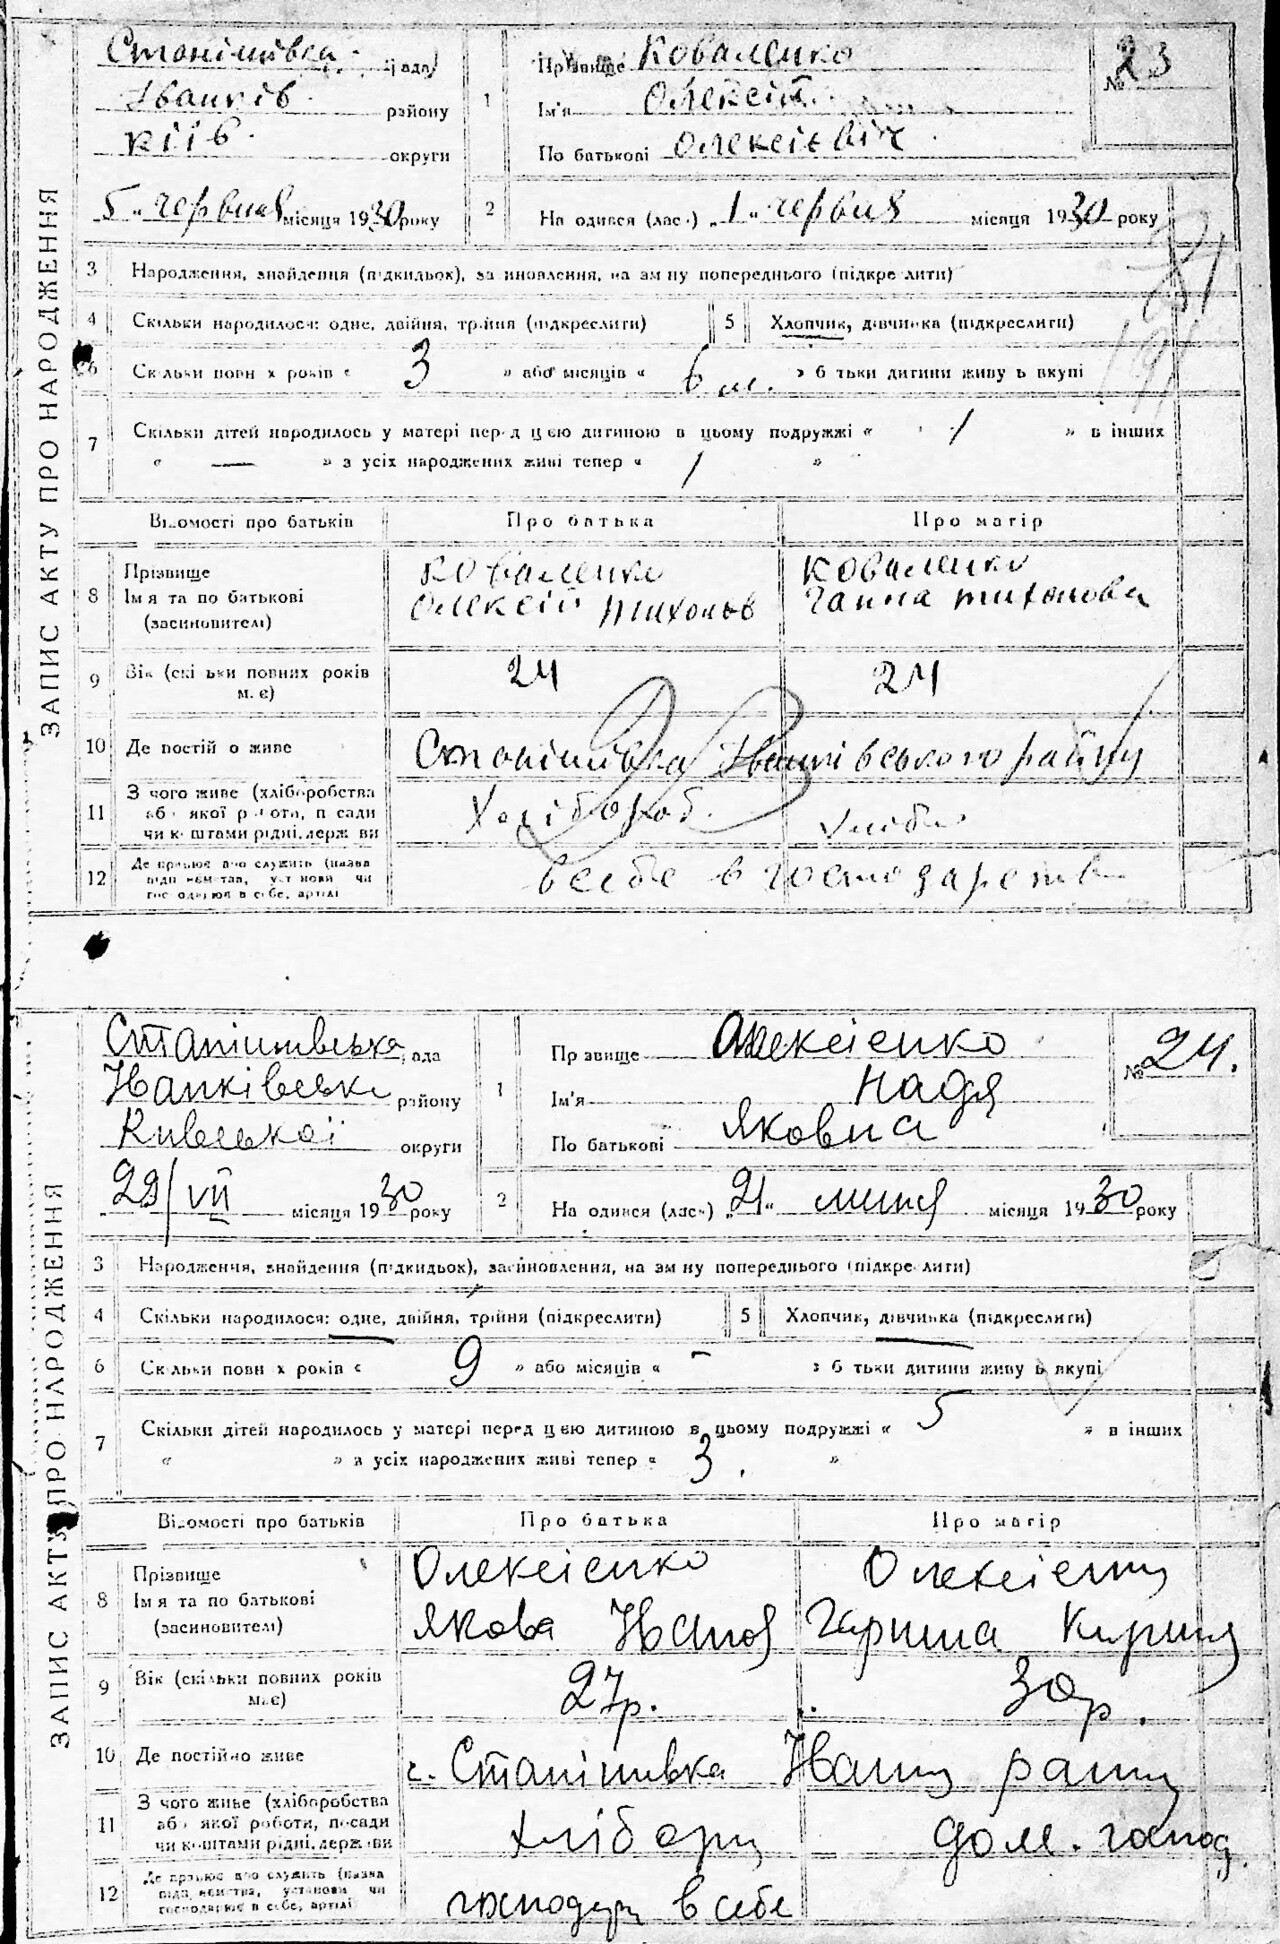 ЗАПИС АКТУ ПРО НАРОДЖЕННЯ
Станішівка рада
Іванків району
Київ округи
5 „ червня місяця 1930 року
1 Прізвище Коваленко
Ім'я Олексій
По батькові Олексієвіч
№ 23
2 На одився (лась) „ 1 “ червня місяця 1930 року
3 Народження, знайдення (підкидьок), за иновлення, на зм ну попереднього (підкре лити)
4 Скільки народилося: одне, двійня, трійня (підкреслити)
5 Хлопчик, дівчинка (підкреслити)
6 Скільки повн х років « 3 » або місяців « 6 м. » б тьки дитини живу ь вкупі
7 Скільки дітей народилось у матері перед цією дитиною в цьому подружжі « 1 » в інших
« — » з усіх народжених живі тепер « 1 »
Відомості про батьків Про батька Про матір
8 Прізвище Ім я та по батькові (засиновителі)
Коваленко Олексій Тихонов
Коваленко Ганна Тихонова
9 Вік (скі ьки повних років м. є) 24 24
10 Де постій о живе Станішівка Іванківського району
11 З чого живе (хліборобства аб якої р оти, п сади чи к штами рідні, держ ви Хлібороб.
12 Де працює або служить (назва підп иємства, уст нови чи гос одарює в себе, артілі в себе в господарстві
ЗАПИС АКТУ ПРО НАРОДЖЕННЯ
Станішивська рада
Іванківське району
Київської округи
„ 29/VII місяця 1930 року
1 Пр звище Олексієнко
Ім'я Надя
По батькові Яковна
№ 24.
2 На одився (лась) „ 21 “ липня місяця 1930 року
3 Народження, знайдення (підкидьок), засиновлення, на зм ну попереднього (підкре лити)
4 Скільки народилося: одне, двійня, трійня (підкреслити)
5 Хлопчик, дівчинка (підкреслити)
6 Скільки повн х років « 9 » або місяців « – » б тьки дитини живу ь вкупі
7 Скільки дітей народилось у матері перед цією дитиною в цьому подружжі « 5 » в інших
« » з усіх народжених живі тепер « 3. »
Відомості про батьків Про батька Про матір
8 Прізвище Ім я та по батькові (засиновителі)
Олексієнко Якова
Олексієнко
9 Вік (скільки повних років має) 27р. 30р.
10 Де постійно живе с. Станішивка
11 З чого живе (хліборобства аб якої роботи, посади чи коштами рідні, держ ви дом. господ.
12 Де працює або служить (назва підприємства, установи чи господарює в себе, артілі в себе